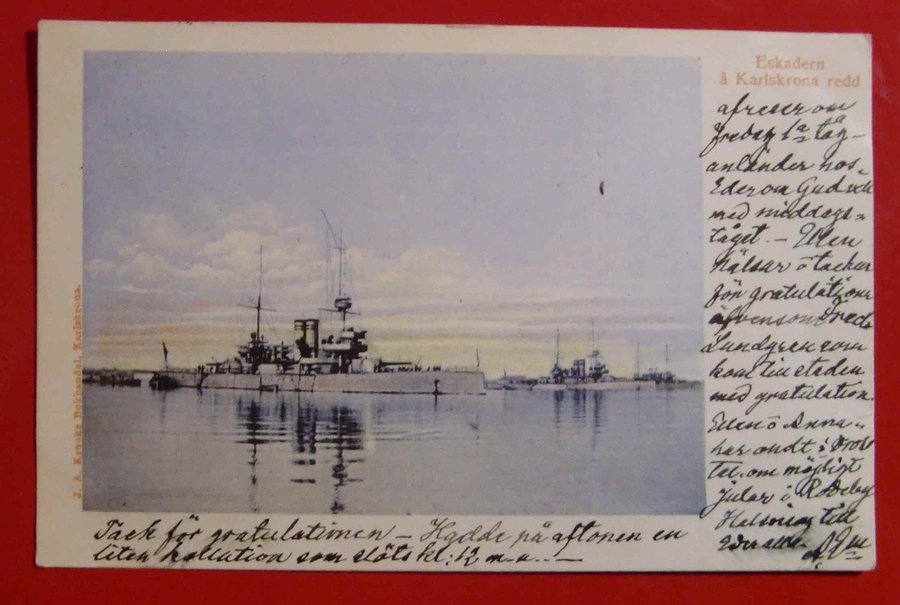 Eskadern
å Karlskrona redd
J. A. Krooks Bokhandel, Karlskrona.
Tack för gratulationen – Hadde på aftonen en
liten kollation som slöts kl. 12 m.n. –
afreser om
fredag 1a tåg –
anländer hos
Eder om Gud vill
med middags-
tåget. – Ellen
hälsar o tackar
för gratulationen
äfvensom
Lundgren som
kom till staden
med gratulation.
Ellen o Anna
har ondt i
om möjligt
i Rödeby
Helsning till
Eder alla.